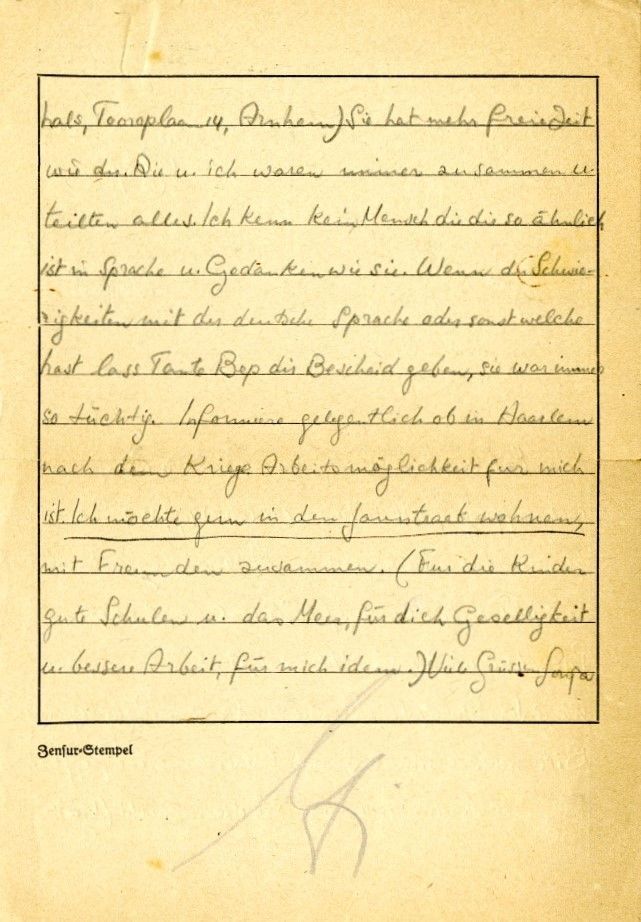 hals, Tooroplaan 14, Arnhem) Sie hat mehr freie Zeit
wie du. Die u. ich waren immer zusammen u.
teilten alles. Ich kenn kein Mensch die die so ähnlich
ist in Sprache u. Gedanken wie sie. Wenn du Schwie-
rigkeiten mit der deutsche Sprache oder sonst welche
hast lass Tante Bep dir Bescheid geben, sie war immer
so tüchtig. Informiere gelegentlich ob in Haarlem
nach dem Kriege Arbeitsmöglichkeit fur mich
ist. Ich möchte gern in den wohnen,
mit Freunden zusammen. (Fur die Kinder
gute Schulen u. das Meer, für dich Geselligkeit
u. bessere Arbeit, für mich idem.) Viele Grüsse
Zensur-Stempel